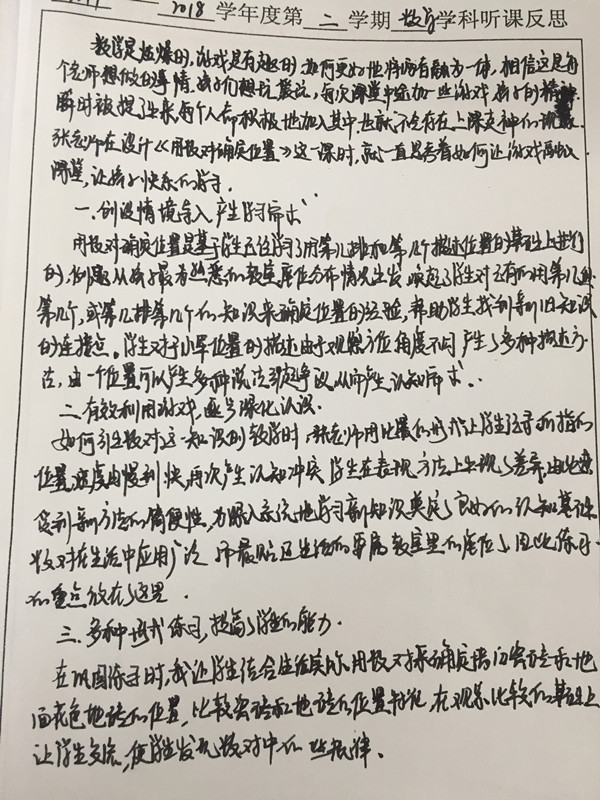 2018 学年度第 二 学期 数学 学科听课反思
数学是枯燥的,游戏是有趣的,如何更好地将两者融为一体,相信这是每
个老师想做的事情。孩子们想玩爱玩,每次课堂中途加一些游戏,孩子的精神
瞬时被提了出来,每个人都积极地加入其中,也就不会存在上课走神的现象
张老师在设计《用数对确定位置》这一课时,就一直思考着如何让游戏再次
课堂,让孩子快乐的学习。
一、创设情境导入,产生学习需求
用数对确定位置是基于学生已经学习了用第几排和第几个描述位置的基础上进行
的,例题从孩子最为熟悉的教室座位分布情况出发,唤起了学生对已有的用第几组
第几个,或第几排第几个的知识来确定位置的经验,帮助学生找到新旧知识
的连接点。学生对于小军位置的描述由于观察方位角度不同,产生了多种描述方
法,由一个位置可以产生多种说法引起争议,从而产生认知需求。
二、有效利用游戏,逐步深化认识.
如何引出数对这一知识的教学时,张老师用比赛的形式让学生记录所指的
位置,速度由慢到快,再次产生认知冲突,学生在表现方法上出现了差异,由此感
受到新方法的简便性,为深入交流地学习新知识奠定了良好的认知基础
数对在生活中应用广泛,而最贴近生活的要属教室里的座位了,因此练习
的重点放在了这里.
三、多种形式练习,提高了学生的能力.
在巩固练习时,我让学生结合生活实际用数对来确定
面花色地砖的位置,比较瓷砖和地砖的位置特征,在观察比较的基础上
让学生交流,使学生发现数对中的一些规律.